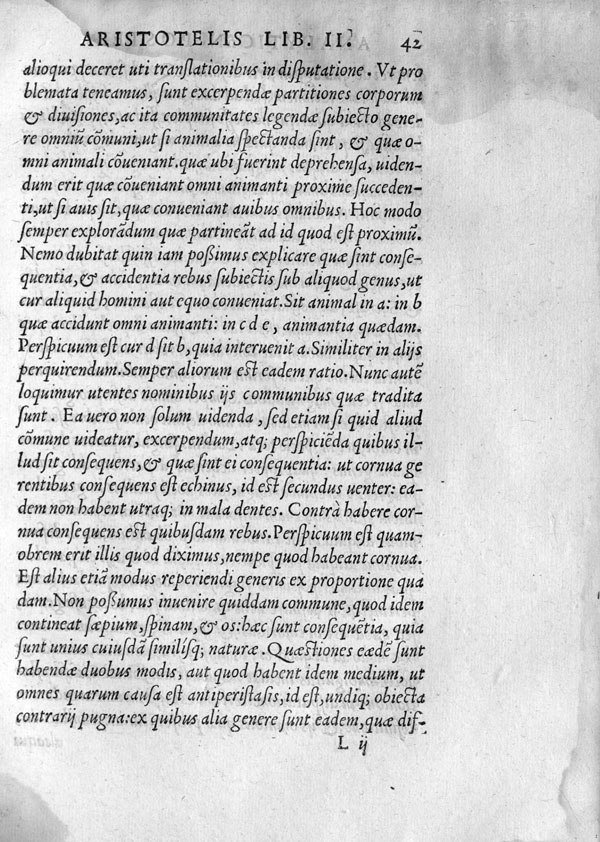 ARISTOTELIS LIB. II. 42
alioqui deceret uti translationibus in disputatione. Vt pro
blemata teneamus, sunt excerpendæ partitiones corporum
& diuisiones, ac ita communitates legendæ subiecto gene-
re omniũ cõmuni, ut si animalia spectanda sint, & quæ o-
mni animali cõueniant. quæ ubi fuerint deprehensa, uiden-
dum erit quæ cõueniant omni animanti proxime succeden-
ti, ut si auis sit, quæ conueniant auibus omnibus. Hoc modo
semper explorãdum quæ partineãt ad id quod est proximũ.
Nemo dubitat quin iam possimus explicare quæ sint conse-
quentia, & accidentia rebus subiectis sub aliquod genus, ut
cur aliquid homini aut equo conueniat. Sit animal in a: in b
quæ accidunt omni animanti: in c d e, animantia quædam.
Perspicuum est cur d sit b, quia interuenit a. Similiter in alijs
perquirendum. Semper aliorum est eadem ratio. Nunc autẽ
loquimur utentes nominibus ijs communibus quæ tradita
sunt. Ea uero non solum uidenda, sed etiam si quid aliud
cõmune uideatur, excerpendum, atq; perspiciẽda quibus il-
lud sit consequens, & quæ sint ei consequentia: ut cornua ge
rentibus consequens est echinus, id est secundus uenter: ea-
dem non habent utraq; in mala dentes. Contrà habere cor-
nua consequens est quibusdam rebus. Perspicuum est quam-
obrem erit illis quod diximus, nempe quod habeant cornua.
Est alius etiã modus reperiendi generis ex proportione qua
dam. Non possumus inuenire quiddam commune, quod idem
contineat sæpium, spinam, & os: hæc sunt consequẽtia, quia
sunt unius cuiusdã similisq; naturæ. Quæstiones eadẽ sunt
habendæ duobus modis, aut quod habent idem medium, ut
omnes quarum causa est antiperistasis, id est, undiq; obiecta
contrarij pugna: ex quibus alia genere sunt eadem, quæ dif-
L ij